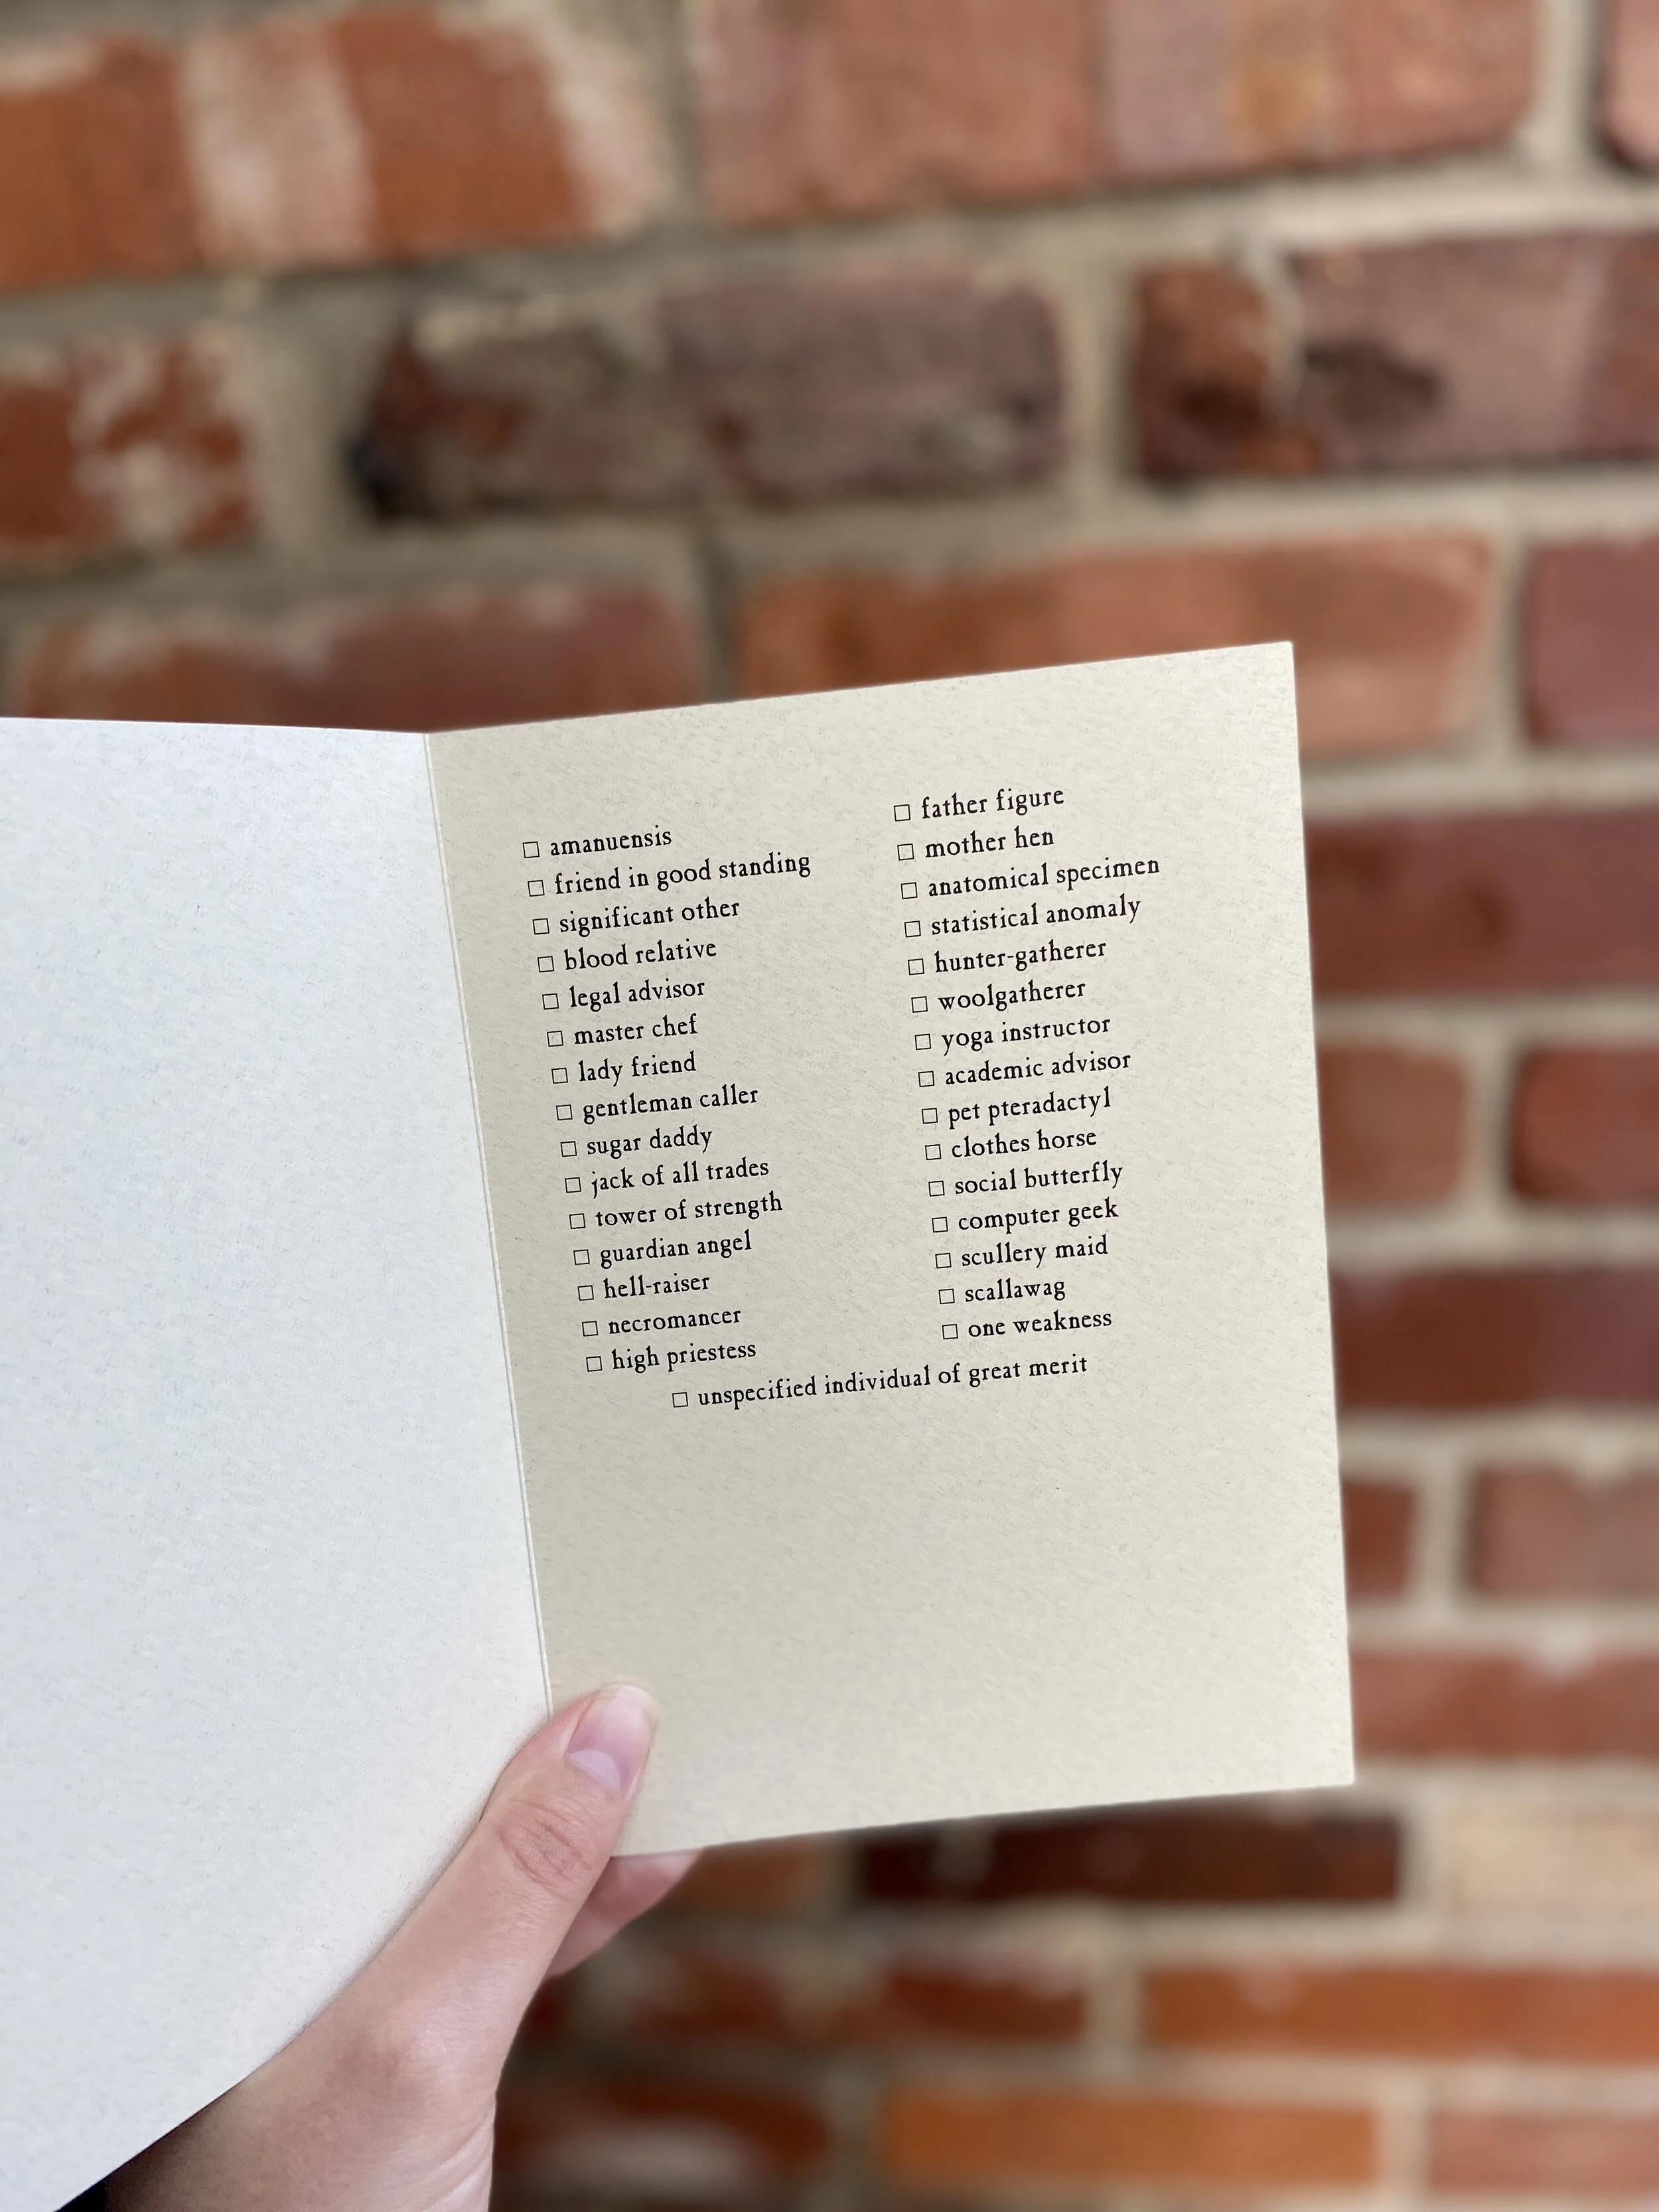 ☐ amanuensis
☐ friend in good standing
☐ significant other
☐ blood relative
☐ legal advisor
☐ master chef
☐ lady friend
☐ gentleman caller
☐ sugar daddy
☐ jack of all trades
☐ tower of strength
☐ guardian angel
☐ hell-raiser
☐ necromancer
☐ high priestess
☐ father figure
☐ mother hen
☐ anatomical specimen
☐ statistical anomaly
☐ hunter-gatherer
☐ woolgatherer
☐ yoga instructor
☐ academic advisor
☐ pet pteradactyl
☐ clothes horse
☐ social butterfly
☐ computer geek
☐ scullery maid
☐ scallawag
☐ one weakness
☐ unspecified individual of great merit